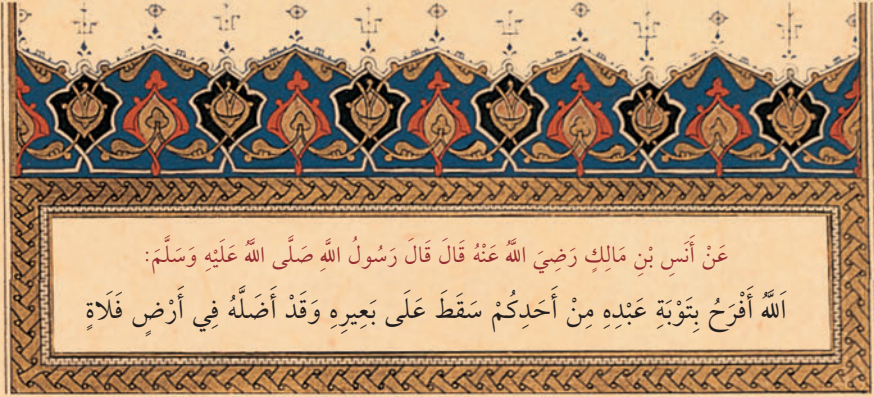 عَنْ أَنَسِ بْنِ مَالِكٍ رَضِيَ اللَّهُ عَنْهُ قَالَ قَالَ رَسُولُ اللَّهِ صَلَّى اللَّهُ عَلَيْهِ وَسَلَّمَ:
اَللَّهُ أَفْرَحُ بِتَوْبَةِ عَبْدِهِ مِنْ أَحَدِكُمْ سَقَطَ عَلَى بَعِيرِهِ وَقَدْ أَضَلَّهُ فِي أَرْضٍ فَلَاةٍ